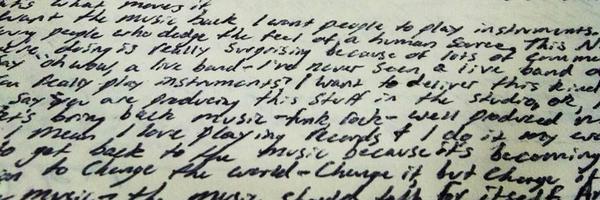 what moves it
want the music back I want people to play instruments.
people who dodge the feel of a human Source This
doing is Really surprising because of lots of
say 'oh wow, a live band - I've never seen a live band
Really play instruments? I want to deliver this kind
say you are producing this stuff in the studio, ok,
let's bring back music - funk, rock - well produced
I mean I love playing Records & I do it my
to get back to the music because it's becoming
to Change the world - Change it, but Change it
the music should talk for itself